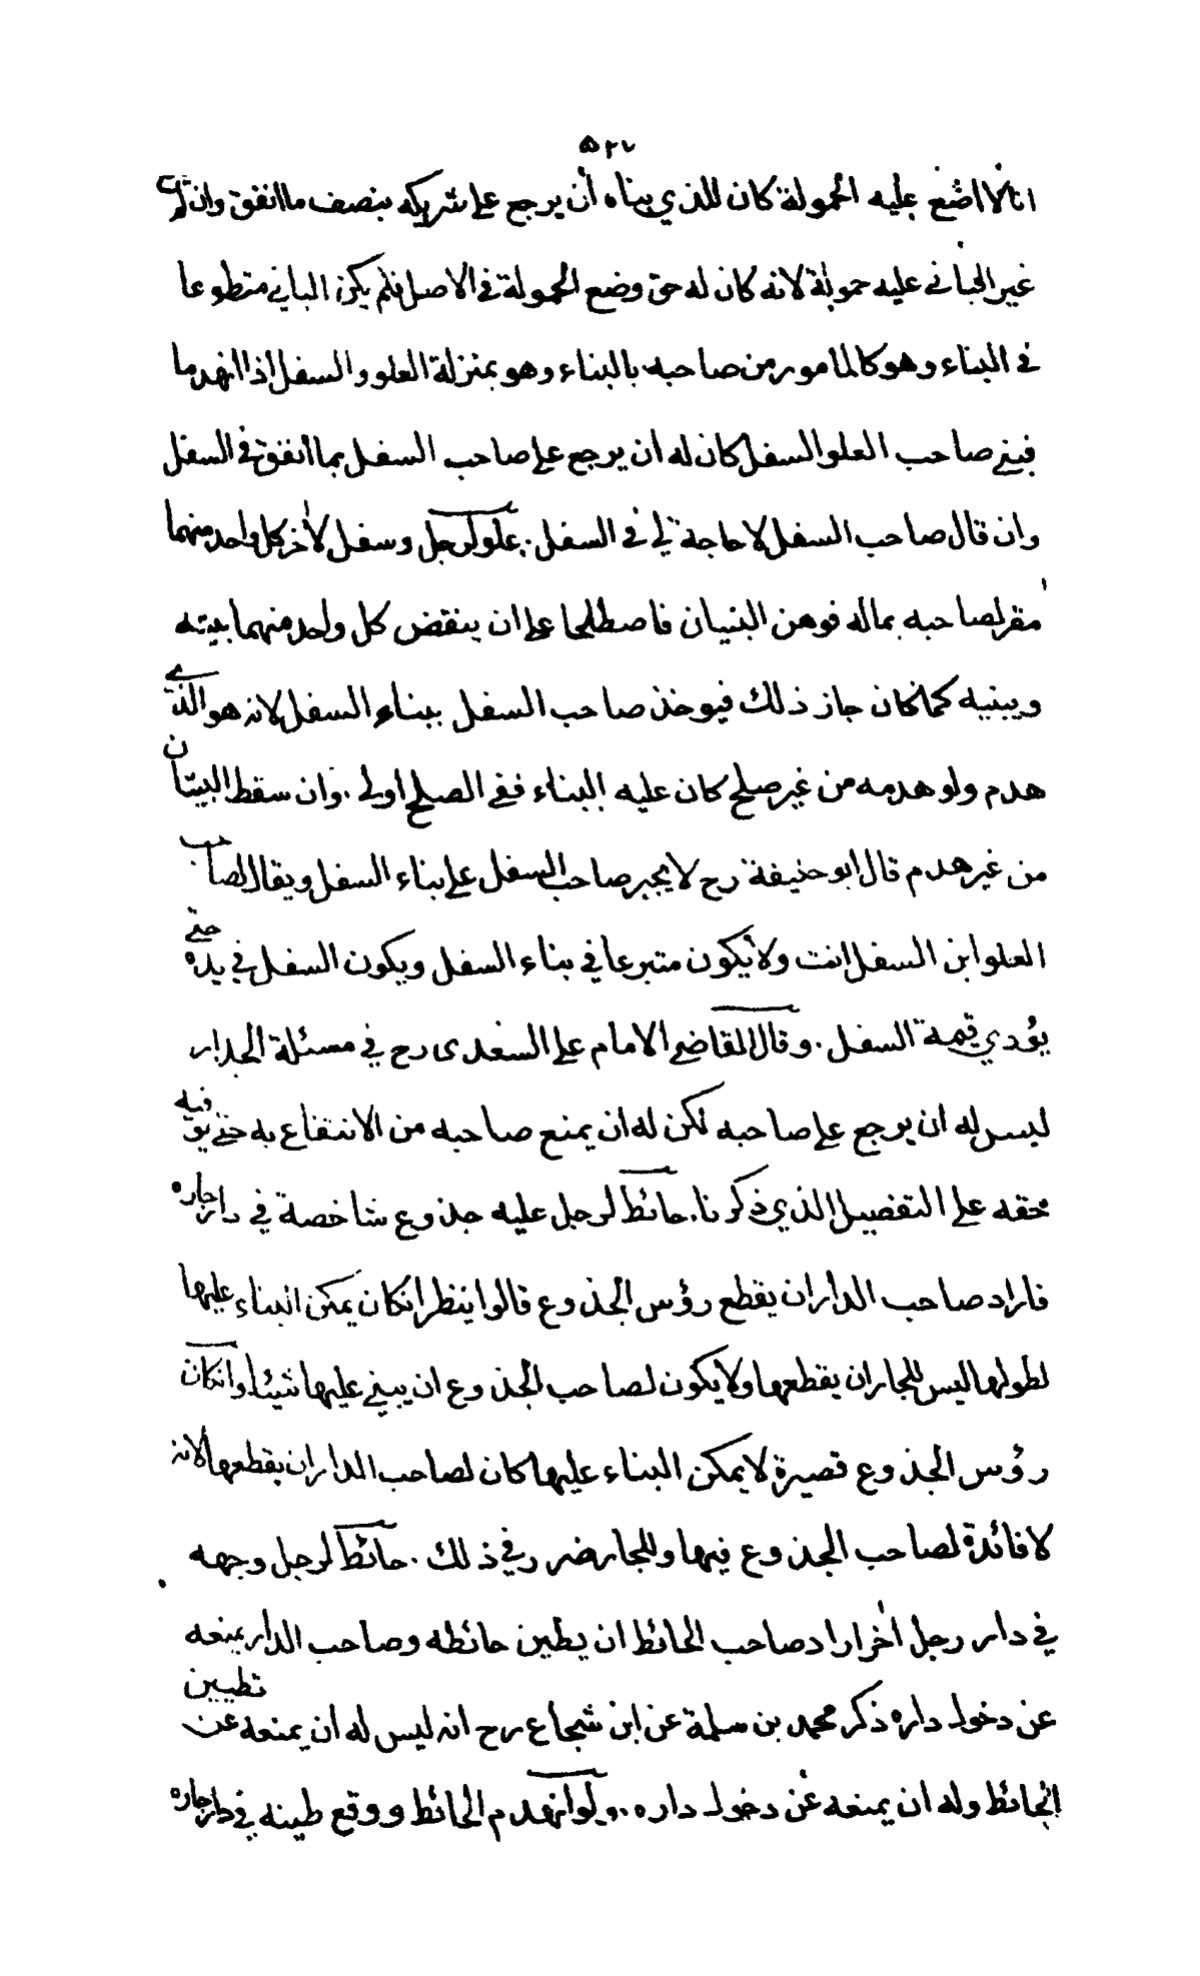 ٥٢٧
انا لا اضع عليه الحمولة كان للذي بناه أن يرجع على شريكه بنصف ما انفق وان لم
غير الباني عليه حمولة لانه كان له حق وضع الحمولة في الاصل فلم يكن الباني متطوعا
في البناء وهو كالمامور من صاحبه بالبناء وهو بمنزلة العلو والسفل اذا انهدما
فبنى صاحب العلو السفل كان له ان يرجع على صاحب السفل بما انفق في السفل
وان قال صاحب السفل لا حاجة لي في السفل . علو لرجل وسفل لأخر كل واحد منهما
مقر لصاحبه بماله فوهن البنيان فاصطلحا على ان ينقض كل واحد منهما بيته
ويبنيه كما كان جاز ذلك فيوخذ صاحب السفل ببناء السفل لانه هو الذي
هدم ولو هدمه من غير صلح كان عليه البناء ففي الصلح اولى . وان سقط البيتان
من غير هدم قال ابو حنيفة رح لا يجبر صاحب السفل على بناء السفل ويقال لصاحب
العلو ابن السفل انت ولا يكون متبرعا في بناء السفل ويكون السفل في يده حتى
يؤدي قيمة السفل . وقال القاضي الامام علي السغدى رح في مسئلة الجدار
ليس له ان يرجع على صاحبه لكن له ان يمنع صاحبه من الانتفاع به حتى يوفيه
حقه على التفصيل الذي ذكرنا . حائط لرجل عليه جذوع شاخصة في دار جاره
فاراد صاحب الدار ان يقطع رؤس الجذوع قالوا ينظر انكان يمكن البناء عليها
لطولها ليس للجار ان يقطعها ولا يكون لصاحب الجذوع ان يبني عليها شيئا وانكان
رؤس الجذوع قصيرة لا يمكن البناء عليها كان لصاحب الدار ان يقطعها لانه
لا فائدة لصاحب الجذوع فيها وللجار ضرر في ذلك . حائط لرجل وجهه
في دار رجل أخر اراد صاحب الحائط ان يطين حائطه وصاحب الدار يمنعه
عن دخول داره ذكر محمد بن سلمة عن ابن شجاع رح انه ليس له ان يمنعه عن تطيين
الحائط وله ان يمنعه عن دخول داره . ولو انهدم الحائط ووقع طينه في دار جاره